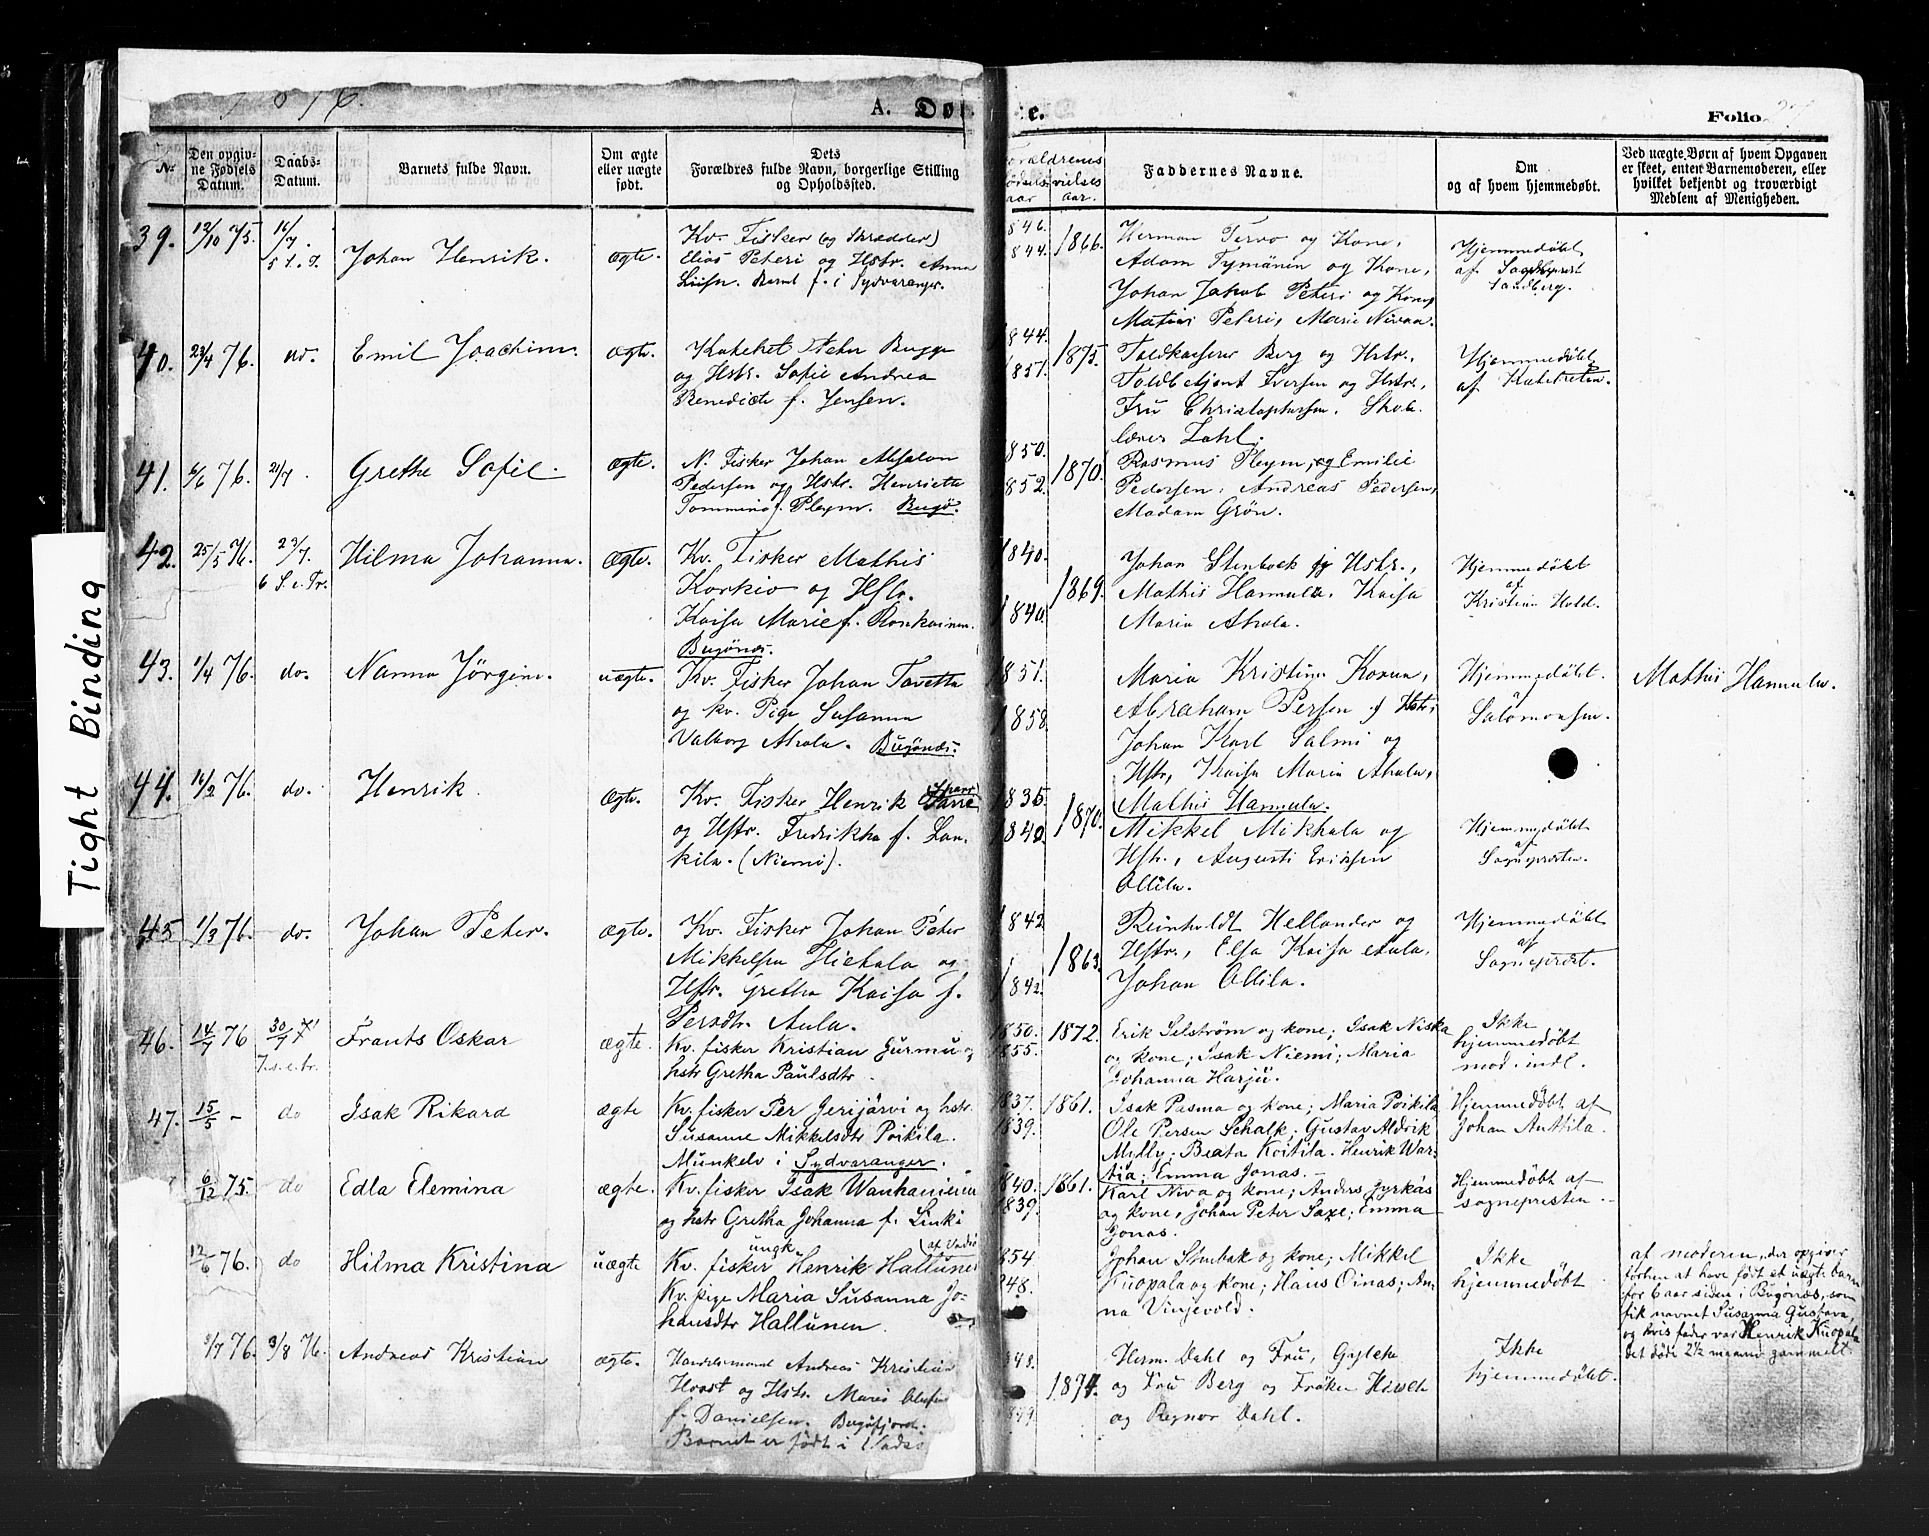 1876.
A. Døbte.
Folio
No.
Den opgiv-
ne Fødsels
Datum.
Daabs-
Datum.
Barnets fulde Navn.
Om ægte
eller uægte
født.
Dets
Forældres fulde Navn, borgerlige Stilling
og Opholdssted.
vielses
aar.
Faddernes Navne.
Om
og af hvem hjemmedøbt.
Ved uægte Børn af hvem Opgaven
er skeet, enten Barnemoderen, eller
hvilket bekjendt og troværdigt
Medlem af Menigheden.
39. 12/10 75. 16/7. Johan Henrik. ægte.
Kv. Fisker (og Skrædder)
Elias Peteri og Hstr. Anna
Luisa. Barnet f. i Sydvaranger.
1846. 1844. 1866.
Herman Tervo og Kone,
Adam Tymänen og Kone,
Johan Jakob Peteri og Kone,
Matias Peteri, Marie Nivan.
Hjemmedøbt
af
Sandberg.
40. 23/4 76. do. Emil Joachim. ægte.
Kateket Peter Bugge
og Hstr. Sofie Andrea
Benedicte f. Jensen.
1844. 1851. 1875.
Toldkasserer Berg og Hstr.,
Toldbetjent Iversen og Hstr.,
Fru Christophersen. Skole-
lærer Zahl.
Hjemmedøbt
af Katekelen.
41. 6/6 76. 21/7. Grethe Sofie. ægte.
N. Fisker Johan Absalon
Pedersen og Hstr. Henriette
f. Pleym. Bugø.
1850. 1852. 1870.
Rasmus Pleym, og Emilie
Pedersen, Andreas Pedersen,
Madam Grøn.
42. 25/5 76. 23/7. Hilma Johanna. ægte.
6 S. e. Tr.
Kv. Fisker Mathis
Korkio og Hstr.
Kaisa Marie f. Ronkainen.
Bugönæs.
1840. 1840. 1869.
Johan Stenbock og Hstr.,
Mathis Hannula, Kaisa
Maria Ahola.
Hjemmedøbt
af
Kristian Hold.
43. 1/4 76. do. Nanna Jörgine. uægte.
Kv. Fisker Johan Tavetta
og kv. Pige Susanna
Valborg Ahola. Bugönæs.
1851. 1858.
Maria Kristine Korva,
Abraham Persen og Hstr,
Johan Karl Salmi og
Hstr, Kaisa Maria Ahola,
Mathis Hannula.
Hjemmedøbt.
af
Salamonsen.
Mathis Hannula.
44. 16/2 76. do. Henrik. ægte.
Kv. Fisker Henrik
og Hstr. Fredrikha f. Lan-
kila. (Niemi).
1835 1840. 1870.
Mikkel Mikhala og
Hstr., Augusti Eriksen
Ollila.
Hjemmedøbt
af
Sognepresten.
45 1/3 76. do. Johan Peter. ægte.
Kv. Fisker Johan Peter
Mikkelsen Hietala og
Hstr. Gretha Kaisa f.
Persdtr. Aula.
1842 1842. 1863.
Reinholdt Hellander og
Hstr., Elsa Kaisa Aula,
Johan Ollila.
Hjemmedøbt
af
Sogneprest.
46. 14/7 76 30/7 Frants Oskar ægte.
7. s. e. tr.
Kv. fisker Kristian Gurmu og
hstr Gretha Paulsdtr.
1850. 1855. 1872.
Erik Selström og kone; Isak Niska
og kone; Isak Niemi; Maria
Johanna Harju.
Ikke
hjemmedøbt
mod. indl.
47. 15/5 – do Isak Rikard ægte
Kv. fisker Per Jerijärvi og hstr.
Susanne Mikkelsdtr Poikila.
Munkelv i Sydvaranger.
1837. 1839. 1861.
Isak Pasma og kone; Maria Poikila,
Ole Persen Schalk; Gustav Aldrik
Mylly; Beata Koitila. Henrik War-
tia; Emma Jonas.
Hjemmedøbt af
Johan Anttila.
6/12 75. do Edla Elemina ægte.
Kv. fisker Isak Wanhaniemi
og hstr Gretha Johanna f. Sinki
1840. 1839. 1861.
Karl Niva og kone; Anders Jyrkäs
og kone, Johan Peter Saxe; Emma
Jonas.
Hjemmedøbt af
sognepresten.
12/6 76. do Hilma Kristina uægte
ungk. (af Vadsø
Kv. fisker Henrik Hallunen
Kv. pige Maria Susanna Jo-
hansdtr Hallunen
1854. 1848.
Johan Stenbak og kone; Mikkel
Kuopala og kone; Hans Oinas; An-
na Vinjevold.
Ikke
hjemmedøbt
af moderen, der opgiver
forhen at have født et uægte barn
for 6 aar siden i Bugønæs, som
fik navnet Susanna Gustava,
og hvis fader var Henrik Kuopala
Det døde 2½ maaned gammelt.
3/7 76. 3/8 76. Andreas Kristian ægte.
Handelsmand Andreas Kristian
Horst og Hstr. Maren
f. Danielsen. Bugøfjord.
Barnet er født i Vadsø
1848. 1849. 1874.
Herm. Dahl og Fru, Gylche
og Fru Berg og Frøken
og Regnor Dahl.
Ikke
hjemmedøbt.
Tight Binding